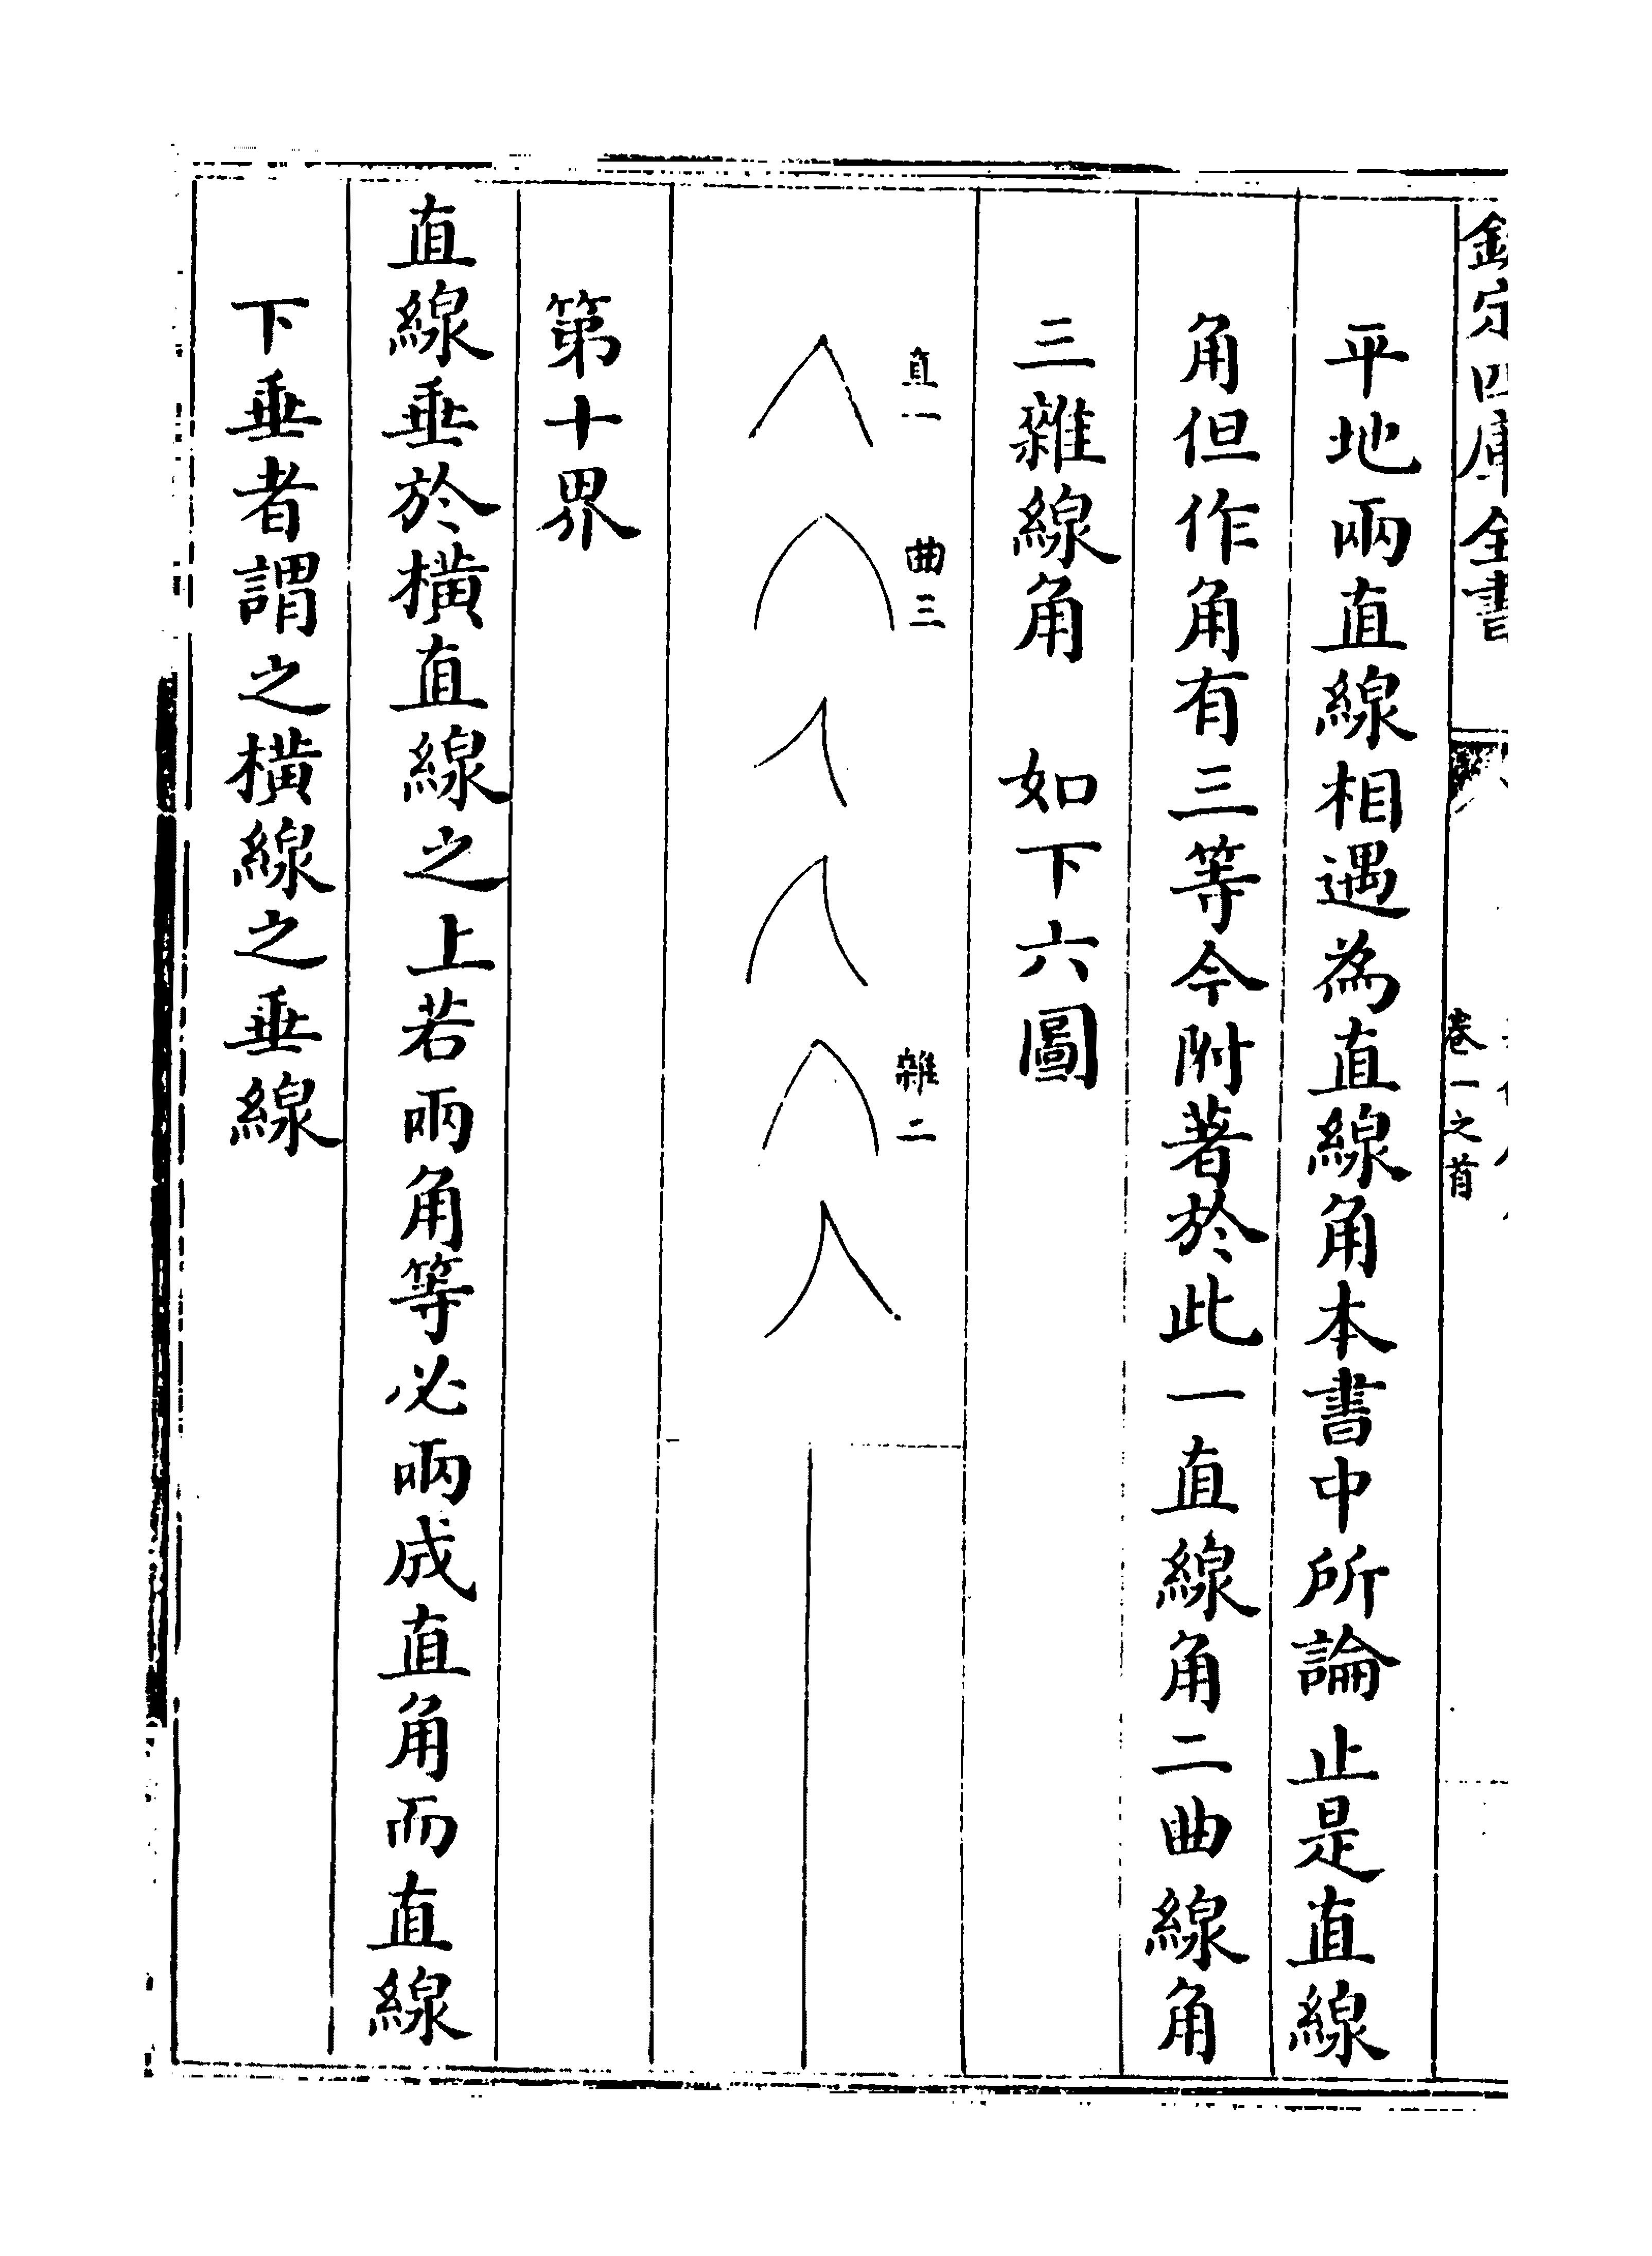 欽定四庫全書
卷一之首
平地兩直線相遇為直線角本書中所論止是直線
角但作角有三等今附著於此一直線角二曲線角
三雜線角 如下六圖
直一
曲三
雜二
第十界
直線垂於橫直線之上若兩角等必兩成直角而直線
下垂者謂之橫線之垂線